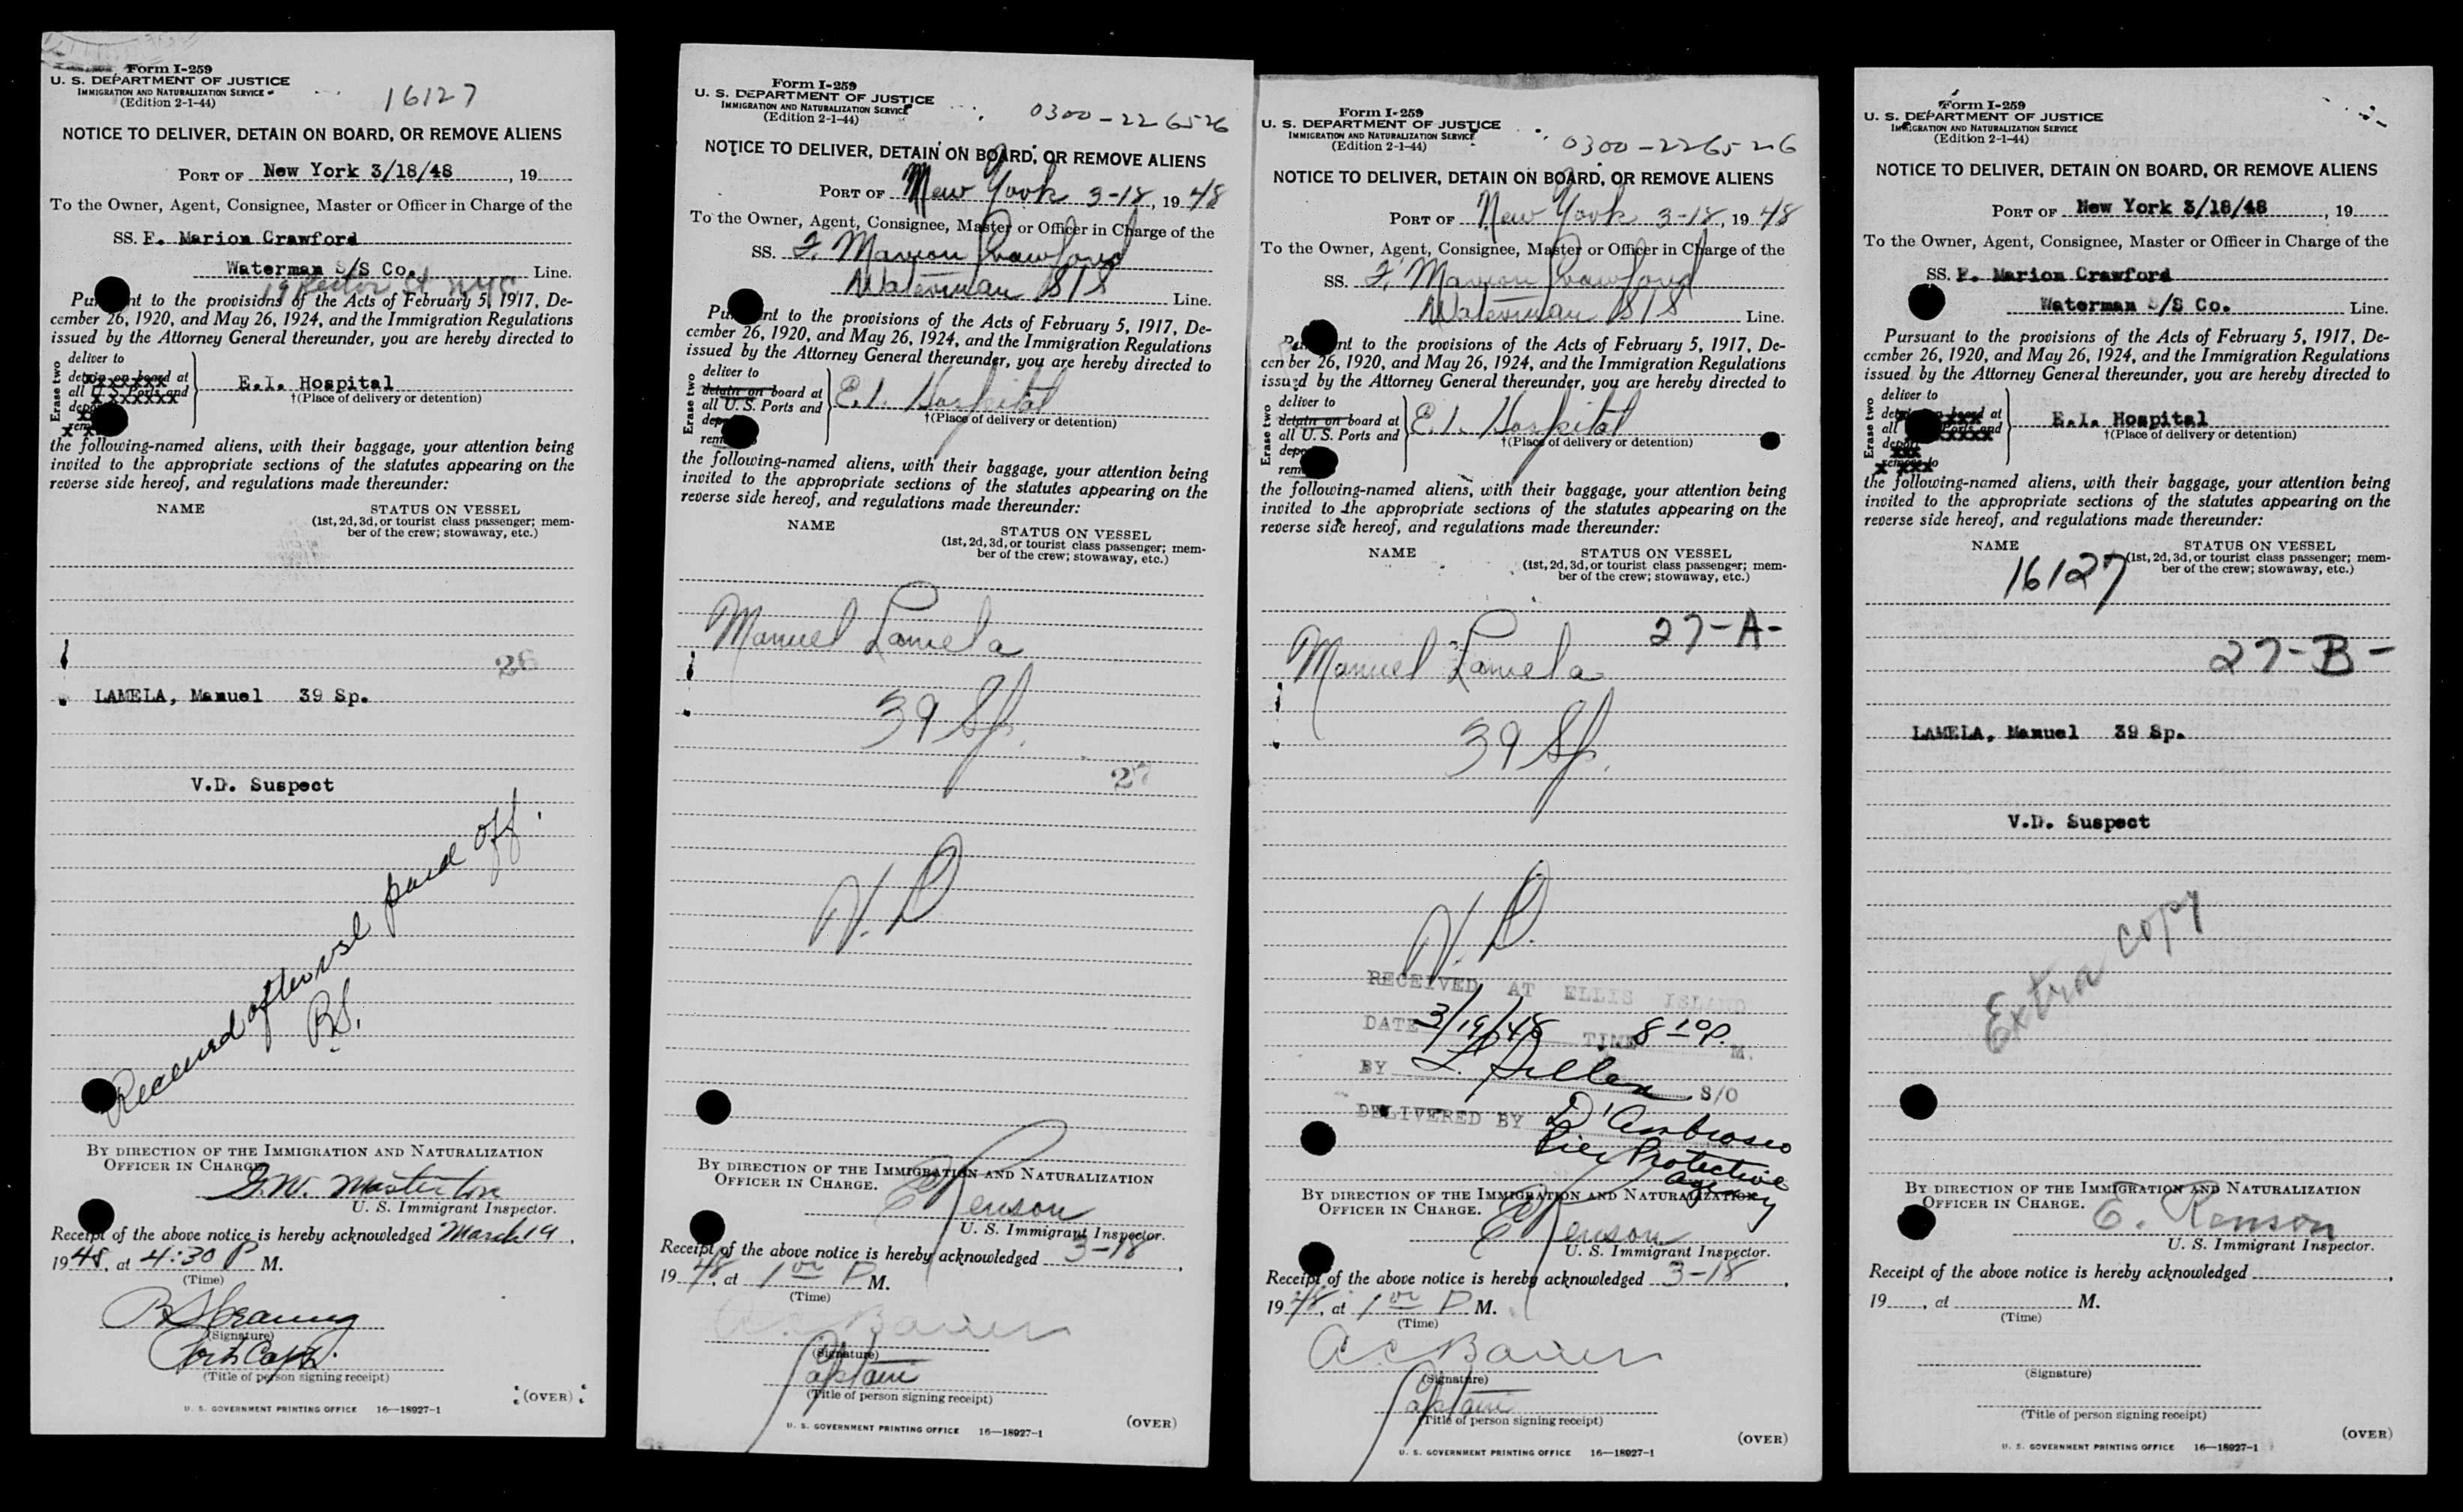 Form I-259
U. S. DEPARTMENT OF JUSTICE
IMMIGRATION AND NATURALIZATION SERVICE
(Edition 2-1-44)
16127
NOTICE TO DELIVER, DETAIN ON BOARD, OR REMOVE ALIENS
PORT OF New York 3/18/48, 19
To the Owner, Agent, Consignee, Master or Officer in Charge of the
SS. F. Marion Crawford
Waterman S/S Co. Line.
19 Rector St NYC
Pursuant to the provisions of the Acts of February 5, 1917, De-
cember 26, 1920, and May 26, 1924, and the Immigration Regulations
issued by the Attorney General thereunder, you are hereby directed to
Erase two
deliver to
detain on board at
all U. S. Ports and
E.I. Hospital
†(Place of delivery or detention)
the following-named aliens, with their baggage, your attention being
invited to the appropriate sections of the statutes appearing on the
reverse side hereof, and regulations made thereunder:
NAME
STATUS ON VESSEL
(1st, 2d, 3d, or tourist class passenger; mem-
ber of the crew; stowaway, etc.)
26
LAMELA, Manuel 39 Sp.
V.D. Suspect
Received after vsl paid off.
RS.
BY DIRECTION OF THE IMMIGRATION AND NATURALIZATION
OFFICER IN CHARGE.
G.W. Masterton
U. S. Immigrant Inspector.
Receipt of the above notice is hereby acknowledged March 19,
1948, at 4:30 P M.
(Time)
(Signature)
Port Capt.
(Title of person signing receipt)
U. S. GOVERNMENT PRINTING OFFICE 16—18927-1
(OVER)
Form I-259
U. S. DEPARTMENT OF JUSTICE
IMMIGRATION AND NATURALIZATION SERVICE
(Edition 2-1-44)
0300-226526
NOTICE TO DELIVER, DETAIN ON BOARD, OR REMOVE ALIENS
PORT OF New York 3-18, 1948
To the Owner, Agent, Consignee, Master or Officer in Charge of the
SS. F. Marion Crawford
Waterman S/S Line.
Pursuant to the provisions of the Acts of February 5, 1917, De-
cember 26, 1920, and May 26, 1924, and the Immigration Regulations
issued by the Attorney General thereunder, you are hereby directed to
Erase two
deliver to
detain on board at
all U. S. Ports and
E.I. Hospital
†(Place of delivery or detention)
the following-named aliens, with their baggage, your attention being
invited to the appropriate sections of the statutes appearing on the
reverse side hereof, and regulations made thereunder:
NAME
STATUS ON VESSEL
(1st, 2d, 3d, or tourist class passenger; mem-
ber of the crew; stowaway, etc.)
Manuel Lamela
39 Sp.
27
V. D
BY DIRECTION OF THE IMMIGRATION AND NATURALIZATION
OFFICER IN CHARGE.
E Renson
U. S. Immigrant Inspector.
Receipt of the above notice is hereby acknowledged 3-18,
1948, at 1 00 P M.
(Time)
A C Bauer
(Signature)
Captain
(Title of person signing receipt)
U. S. GOVERNMENT PRINTING OFFICE 16—18927-1
(OVER)
Form I-259
U. S. DEPARTMENT OF JUSTICE
IMMIGRATION AND NATURALIZATION SERVICE
(Edition 2-1-44)
0300-226526
NOTICE TO DELIVER, DETAIN ON BOARD, OR REMOVE ALIENS
PORT OF New York 3-18, 1948
To the Owner, Agent, Consignee, Master or Officer in Charge of the
SS. F. Marion Crawford
Waterman S/S Line.
Pursuant to the provisions of the Acts of February 5, 1917, De-
cember 26, 1920, and May 26, 1924, and the Immigration Regulations
issued by the Attorney General thereunder, you are hereby directed to
Erase two
deliver to
detain on board at
all U. S. Ports and
E.I. Hospital
†(Place of delivery or detention)
the following-named aliens, with their baggage, your attention being
invited to the appropriate sections of the statutes appearing on the
reverse side hereof, and regulations made thereunder:
NAME
STATUS ON VESSEL
(1st, 2d, 3d, or tourist class passenger; mem-
ber of the crew; stowaway, etc.)
27-A-
Manuel Lamela
39 Sp.
V. D.
RECEIVED AT ELLIS ISLAND
DATE 3/19/48 TIME 8 10 P. M.
BY L. Dillen S/O
DELIVERED BY D'Ambrosio
Pier Protective
Agency
BY DIRECTION OF THE IMMIGRATION AND NATURALIZATION
OFFICER IN CHARGE.
E Renson
U. S. Immigrant Inspector.
Receipt of the above notice is hereby acknowledged 3-18,
1948, at 1 00 P M.
(Time)
A C Bauer
(Signature)
Captain
(Title of person signing receipt)
U. S. GOVERNMENT PRINTING OFFICE 16—18927-1
(OVER)
Form I-259
U. S. DEPARTMENT OF JUSTICE
IMMIGRATION AND NATURALIZATION SERVICE
(Edition 2-1-44)
NOTICE TO DELIVER, DETAIN ON BOARD, OR REMOVE ALIENS
PORT OF New York 3/18/48, 19
To the Owner, Agent, Consignee, Master or Officer in Charge of the
SS. F. Marion Crawford
Waterman S/S Co. Line.
Pursuant to the provisions of the Acts of February 5, 1917, De-
cember 26, 1920, and May 26, 1924, and the Immigration Regulations
issued by the Attorney General thereunder, you are hereby directed to
Erase two
deliver to
detain on board at
all U. S. Ports and
remove to
E.I. Hospital
†(Place of delivery or detention)
the following-named aliens, with their baggage, your attention being
invited to the appropriate sections of the statutes appearing on the
reverse side hereof, and regulations made thereunder:
NAME
STATUS ON VESSEL
(1st, 2d, 3d, or tourist class passenger; mem-
ber of the crew; stowaway, etc.)
16127
27-B-
LAMELA, Manuel 39 Sp.
V.D. Suspect
Extra copy
BY DIRECTION OF THE IMMIGRATION AND NATURALIZATION
OFFICER IN CHARGE.
E. Renson
U. S. Immigrant Inspector.
Receipt of the above notice is hereby acknowledged ,
19 , at M.
(Time)
(Signature)
(Title of person signing receipt)
U. S. GOVERNMENT PRINTING OFFICE 16—18927-1
(OVER)